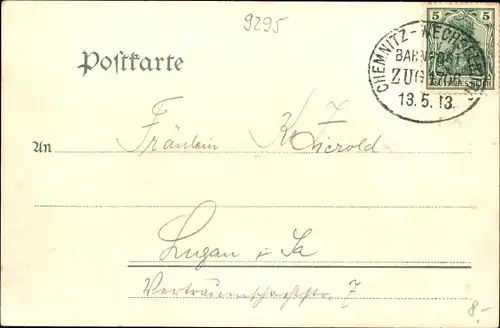 9295
5 5
CHEMNITZ-
BAHNPOST
ZUG
13.5.13.
Postkarte
An Fräulein K. Zierold
Lugau i. Sa
Vertrauenschachtstr. 7
8.-